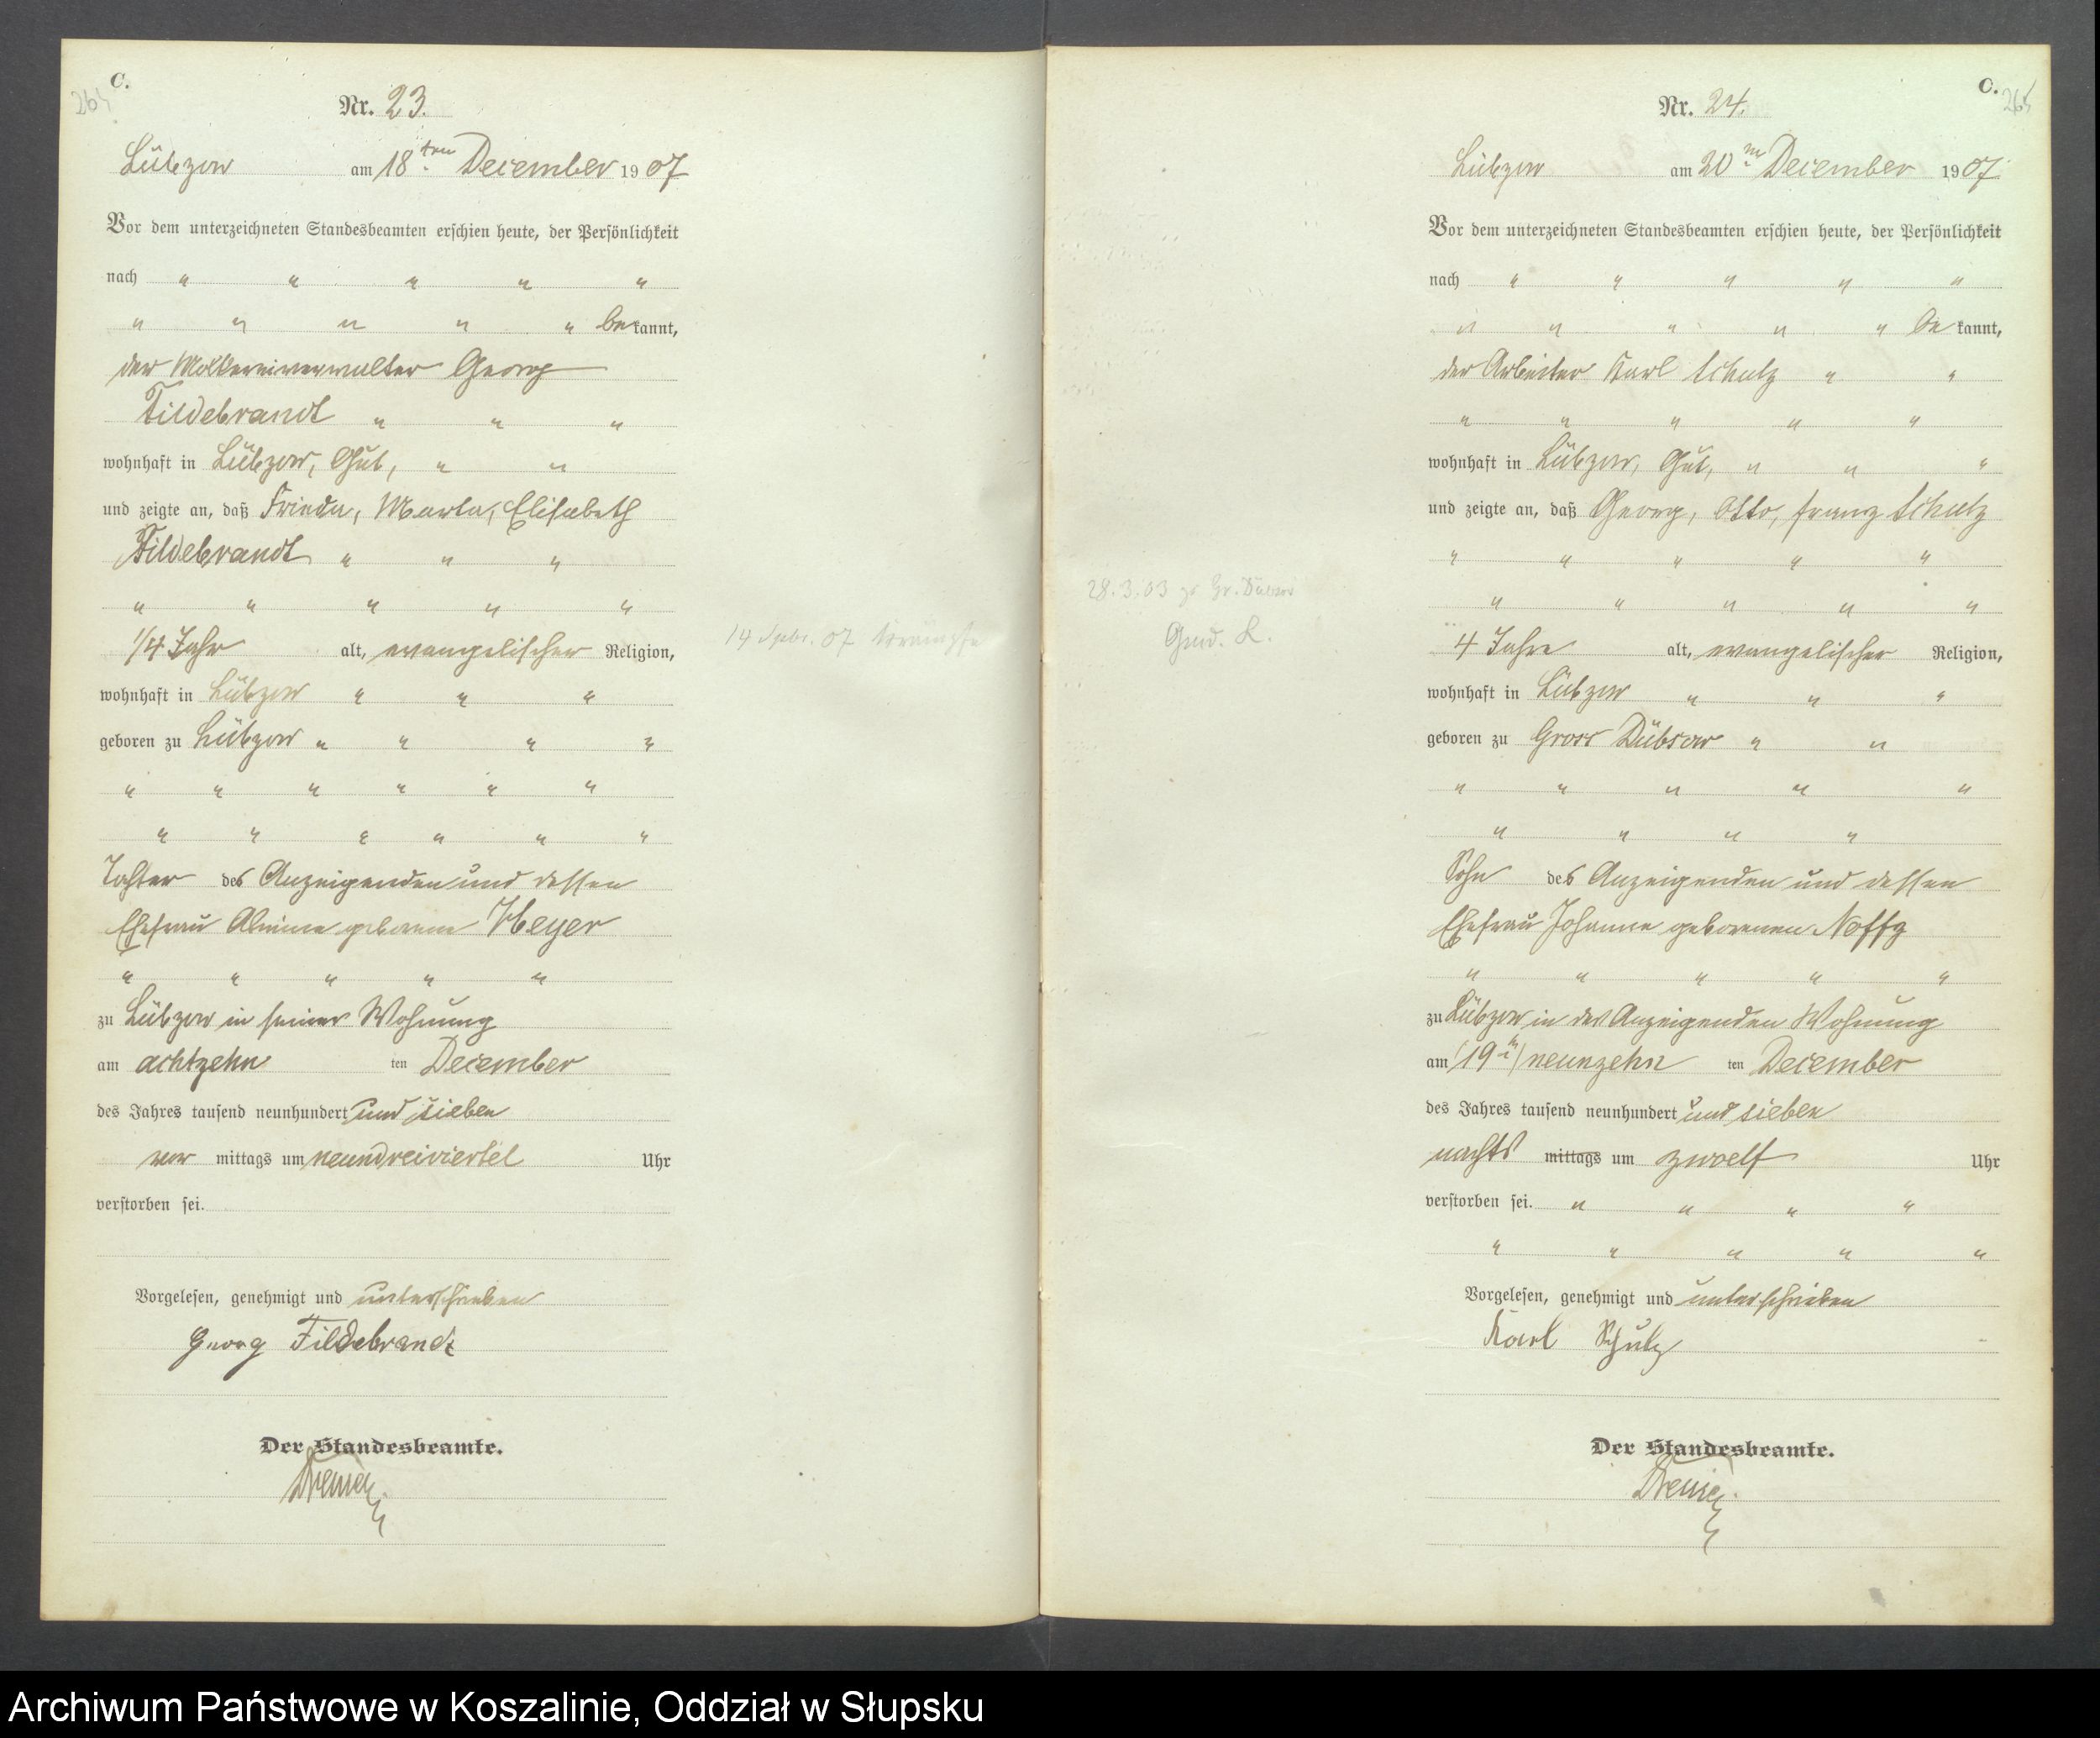 C.
Nr. 23.
Lübzow am 18ten December 1907
Vor dem unterzeichneten Standesbeamten erschien heute, der Persönlichkeit
nach " " " " "
" " " " " bekannt,
der Molkereiverwalter Georg
Fildebrandt " " "
wohnhaft in Lübzow, Gut, " "
und zeigte an, daß Frieda, Marta, Elisabeth
Fildebrandt " " "
" " " " "
1/4 Jahr alt, evangelischer Religion,
wohnhaft in Lübzow " " "
geboren zu Lübzow " " " "
" " " " " "
" " " " " "
Tochter des Anzeigenden und dessen
Ehefrau geborene Heyer
" " " " "
zu Lübzow in seiner Wohnung
am achtzehn ten December
des Jahres tausend neunhundert und sieben
vor mittags um neundreiviertel Uhr
verstorben sei.
Vorgelesen, genehmigt und unterschrieben
Georg Fildebrandt
Der Standesbeamte.
14 Spbr. 07 Krämpfe
C.
Nr. 24.
Lübzow am 20ten December 1907
Vor dem unterzeichneten Standesbeamten erschien heute, der Persönlichkeit
nach " " " " "
" " " " " bekannt,
der Arbeiter Karl Schulz " "
" " " " "
wohnhaft in Lübzow, Gut, " " "
und zeigte an, daß Georg, Otto, Franz Schulz
" " " " "
" " " " "
4 Jahre alt, evangelischer Religion,
wohnhaft in Lübzow " " "
geboren zu Gross Dübsow " "
" " " " "
" " " "
Sohn des Anzeigenden und dessen
Ehefrau Johanne geborenen Noffz
" " " " "
zu Lübzow in des Anzeigenden Wohnung
am (19ten) neunzehn ten December
des Jahres tausend neunhundert und sieben
nachts mittags um zwoelf Uhr
verstorben sei. " " " "
" " " " "
Vorgelesen, genehmigt und unterschrieben
Karl Schulz
Der Standesbeamte.
28.3.03 zu Gr. Dübsow
Archiwum Państwowe w Koszalinie, Oddział w Słupsku